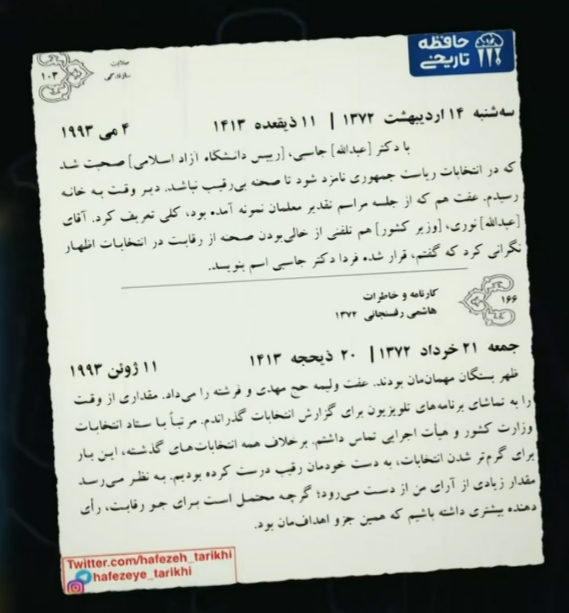 حافظه
تاریخی
صلابت
سازندگی
۱۰۳
سه‌شنبه ۱۴ اردیبهشت ۱۳۷۲ | ۱۱ ذیقعده ۱۴۱۳ ۴ می ۱۹۹۳
با دکتر [عبدالله] جاسبی، [رییس دانشگاه آزاد اسلامی] صحبت شد
که در انتخابات ریاست جمهوری نامزد شود تا صحنه بی‌رقیب نباشد. دیر وقت به خانه
رسیدم. عفت هم که از جلسه مراسم تقدیر معلمان نمونه آمده بود، کلی تعریف کرد. آقای
[عبدالله] نوری، [وزیر کشور] هم تلفنی از خالی‌بودن صحنه از رقابت در انتخابات اظهار
نگرانی کرد که گفتم، قرار شده فردا دکتر جاسبی اسم بنویسد.
۱۶۶
کارنامه و خاطرات
هاشمی رفسنجانی ۱۳۷۲
جمعه ۲۱ خرداد ۱۳۷۲ | ۲۰ ذیحجه ۱۴۱۳ ۱۱ ژوئن ۱۹۹۳
ظهر بستگان مهمان‌مان بودند. عفت ولیمه حج مهدی و فرشته را می‌داد. مقداری از وقت
را به تماشای برنامه‌های تلویزیون برای گزارش انتخابات گذراندم. مرتباً با ستاد انتخابات
وزارت کشور و هیأت اجرایی تماس داشتم. برخلاف همه انتخابات‌های گذشته، این بار
برای گرم‌تر شدن انتخابات، به دست خودمان رقیب درست کرده بودیم. به نظر می‌رسد
مقدار زیادی از آرای من از دست می‌رود؛ گرچه محتمل است برای جو رقابت، رأی
دهنده بیشتری داشته باشیم که همین جزو اهداف‌مان بود.
Twitter.com/hafezeh_tarikhi
hafezeye_tarikhi